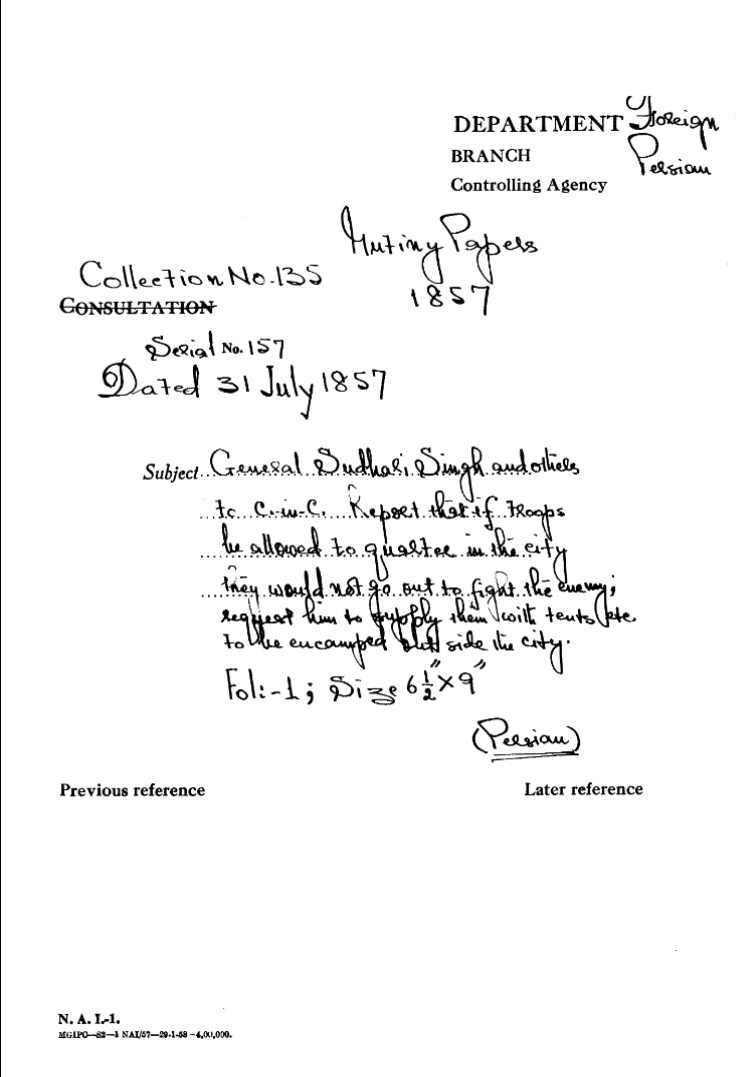 DEPARTMENT Foreign
BRANCH Persian
Controlling Agency
Mutiny Papers
1857
Collection No. 135
CONSULTATION
Serial No. 157
Dated 31 July 1857
Subject General Sudhari Singh and others
to C.-in-C. Report that if troops
be allowed to quarter in the city
they would not go out to fight the enemy;
request him to supply them with tents etc.
to be encamped out side the city.
Fol:-1; Size 6½"×9"
(Persian)
Previous reference Later reference
N. A. I.-1.
MGIPC—S2—1 NAI/57—29-1-58—4,00,000.